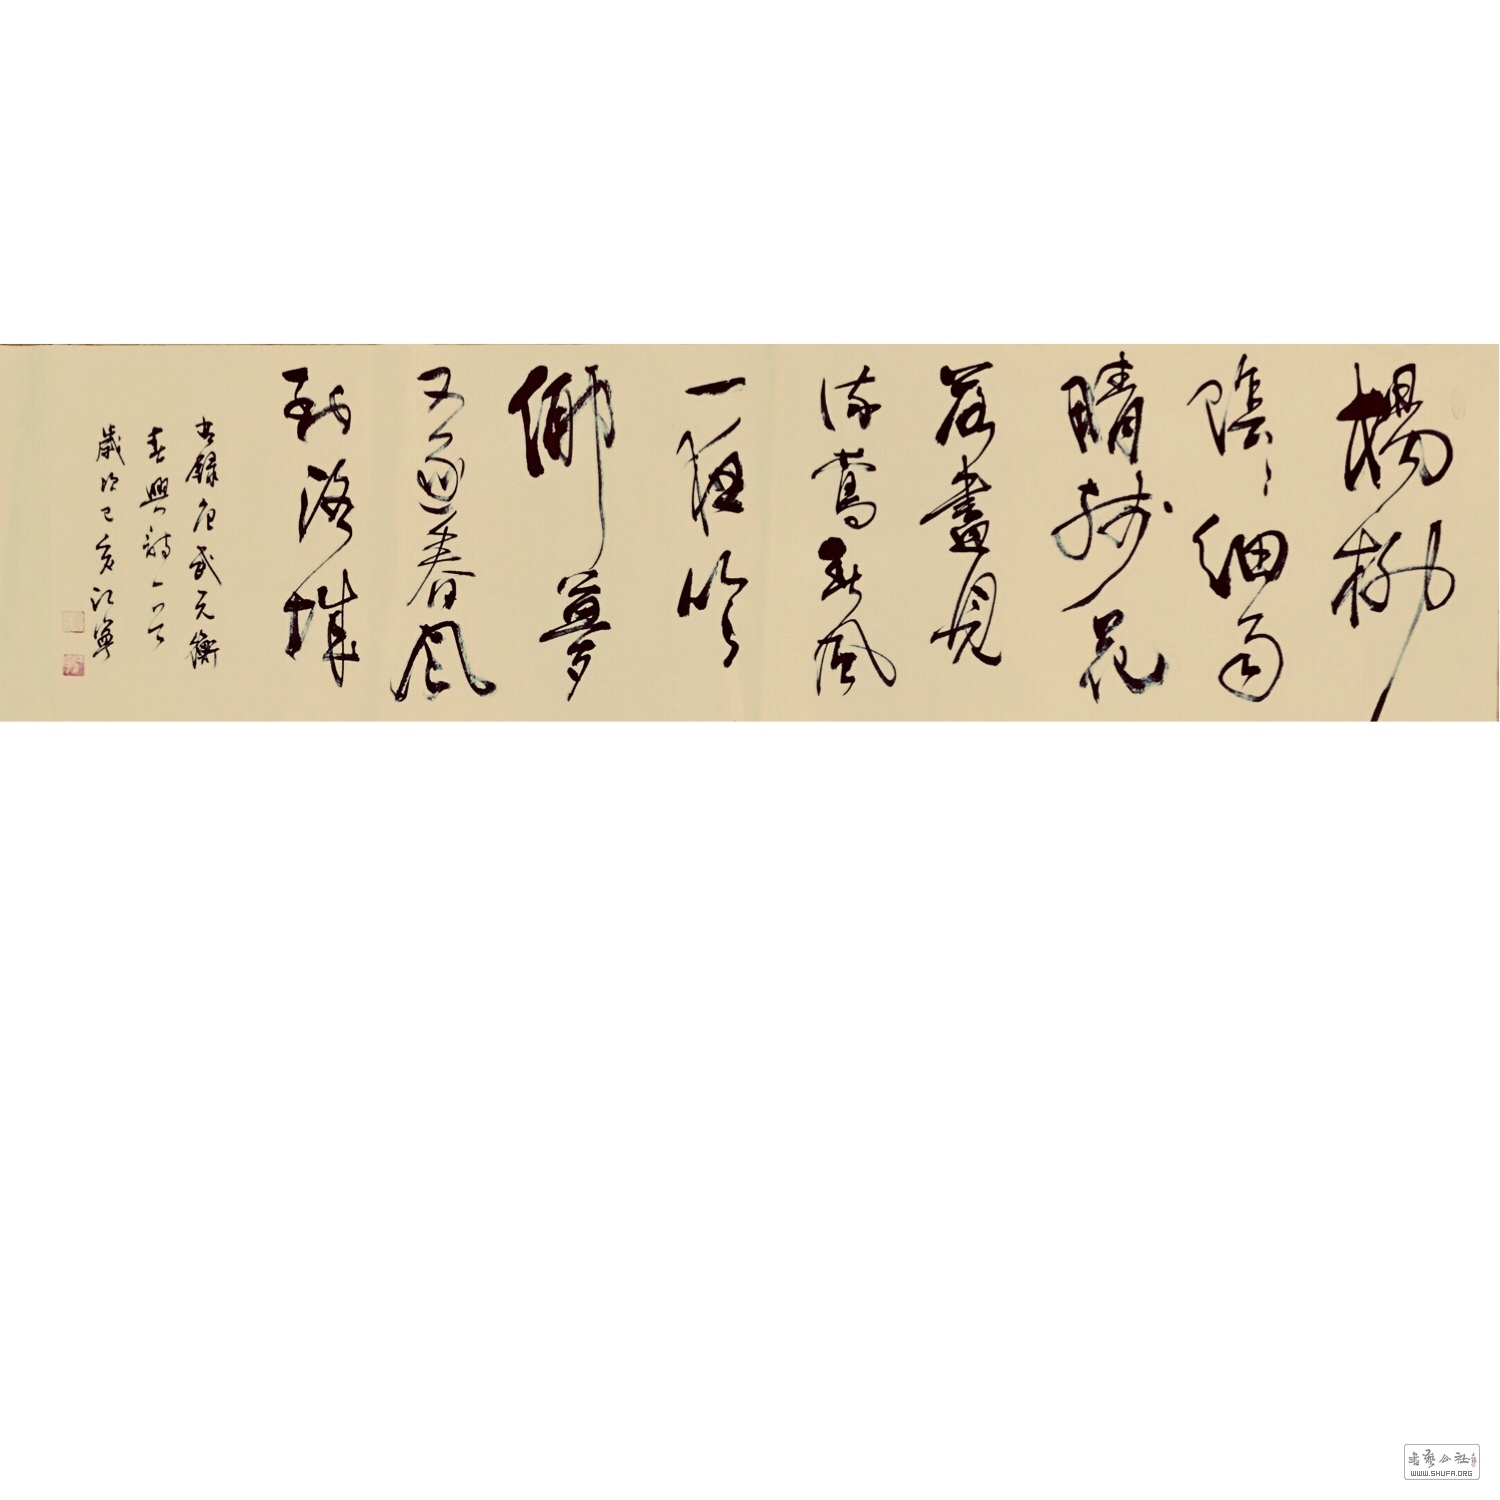 楊柳
陰〻細雨
晴殘花
落盡見
流鶯春風
一夜吹
鄉夢
又逐春風
到洛城
書錄唐武元衡
春興詩一首
歲次己亥江寧
書藝公社
WWW.SHUFA.ORG